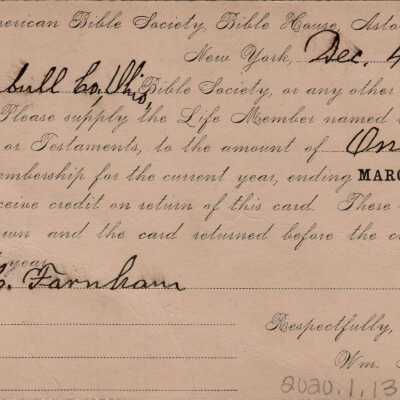 merican Bible Society, Bible House, Asto
New York, Dec. 4
bull Co, Ohio, Bible Society, or any other
Please supply the Life Member named
or Testaments, to the amount of On
mbership for the current year, ending MARC
ceive credit on return of this card. These
wn and the card returned before the c
year.
C. Farnham
Respectfully,
Wm.
2020.1.13